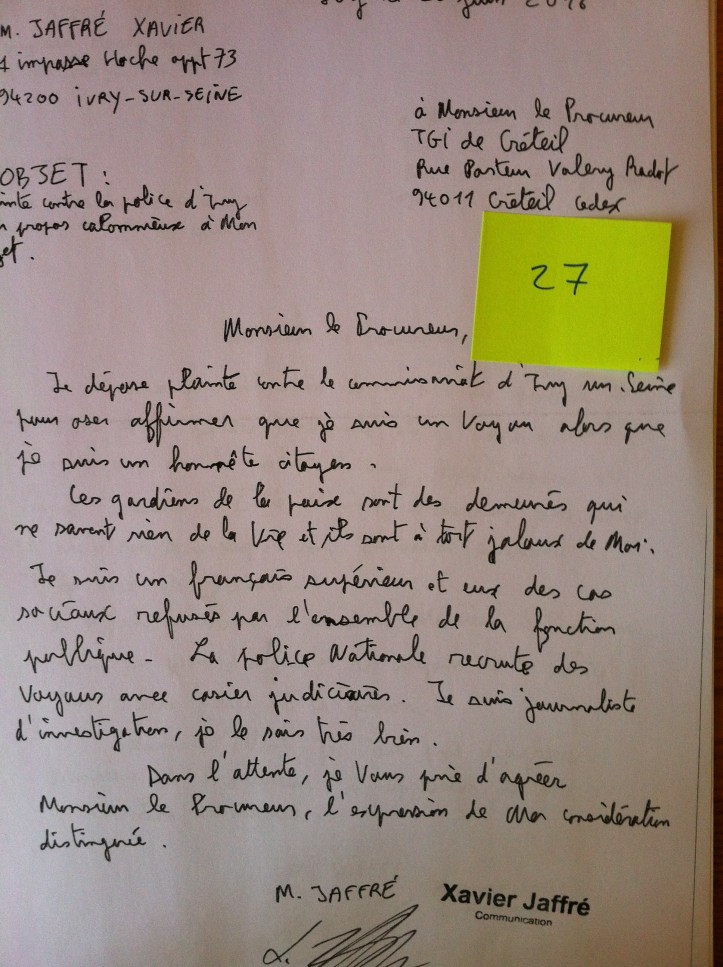 M. JAFFRÉ XAVIER
1 impasse Hoche appt 73
94200 IVRY-SUR-SEINE
à Monsieur le Procureur
TGI de Créteil
Rue Pasteur Valery Radot
94011 Créteil cedex
OBJET :
inte contre la police d'Ivry
propos calomnieux à Mon
et.
27
Monsieur le Procureur,
Je dépose plainte contre le commissariat d'Ivry sur Seine
pour oser affirmer que je suis un voyou alors que
je suis un honnête citoyen.
Ces gardiens de la paix sont des demeurés qui
ne savent rien de la vie et ils sont à tort jaloux de Moi.
Je suis un français supérieur et eux des cas
sociaux refusés par l'ensemble de la fonction
publique. La police Nationale recrute des
voyous avec casier judiciaires. Je suis journaliste
d'investigation, je le sais très bien.
Dans l'attente, je vous prie d'agréer
Monsieur le Procureur, l'expression de Ma considération
distinguée.
M. JAFFRÉ
Xavier Jaffré
Communication